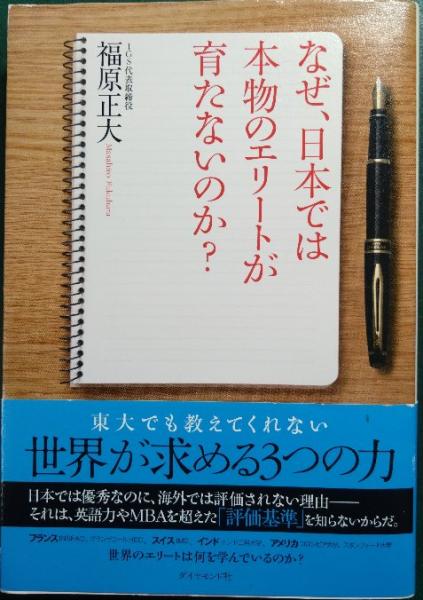 なぜ、日本では
本物のエリートが
育たないのか?
IGS代表取締役
福原正大
Masahiro Fukuhara
東大でも教えてくれない
世界が求める3つの力
日本では優秀なのに、海外では評価されない理由――
それは、英語力やMBAを超えた「評価基準」を知らないからだ。
フランス INSEAD、グランゼコールHEC、スイス IMD、インド インド工科大学、アメリカ コロンビア大学、スタンフォード大学
世界のエリートは何を学んでいるのか?
ダイヤモンド社